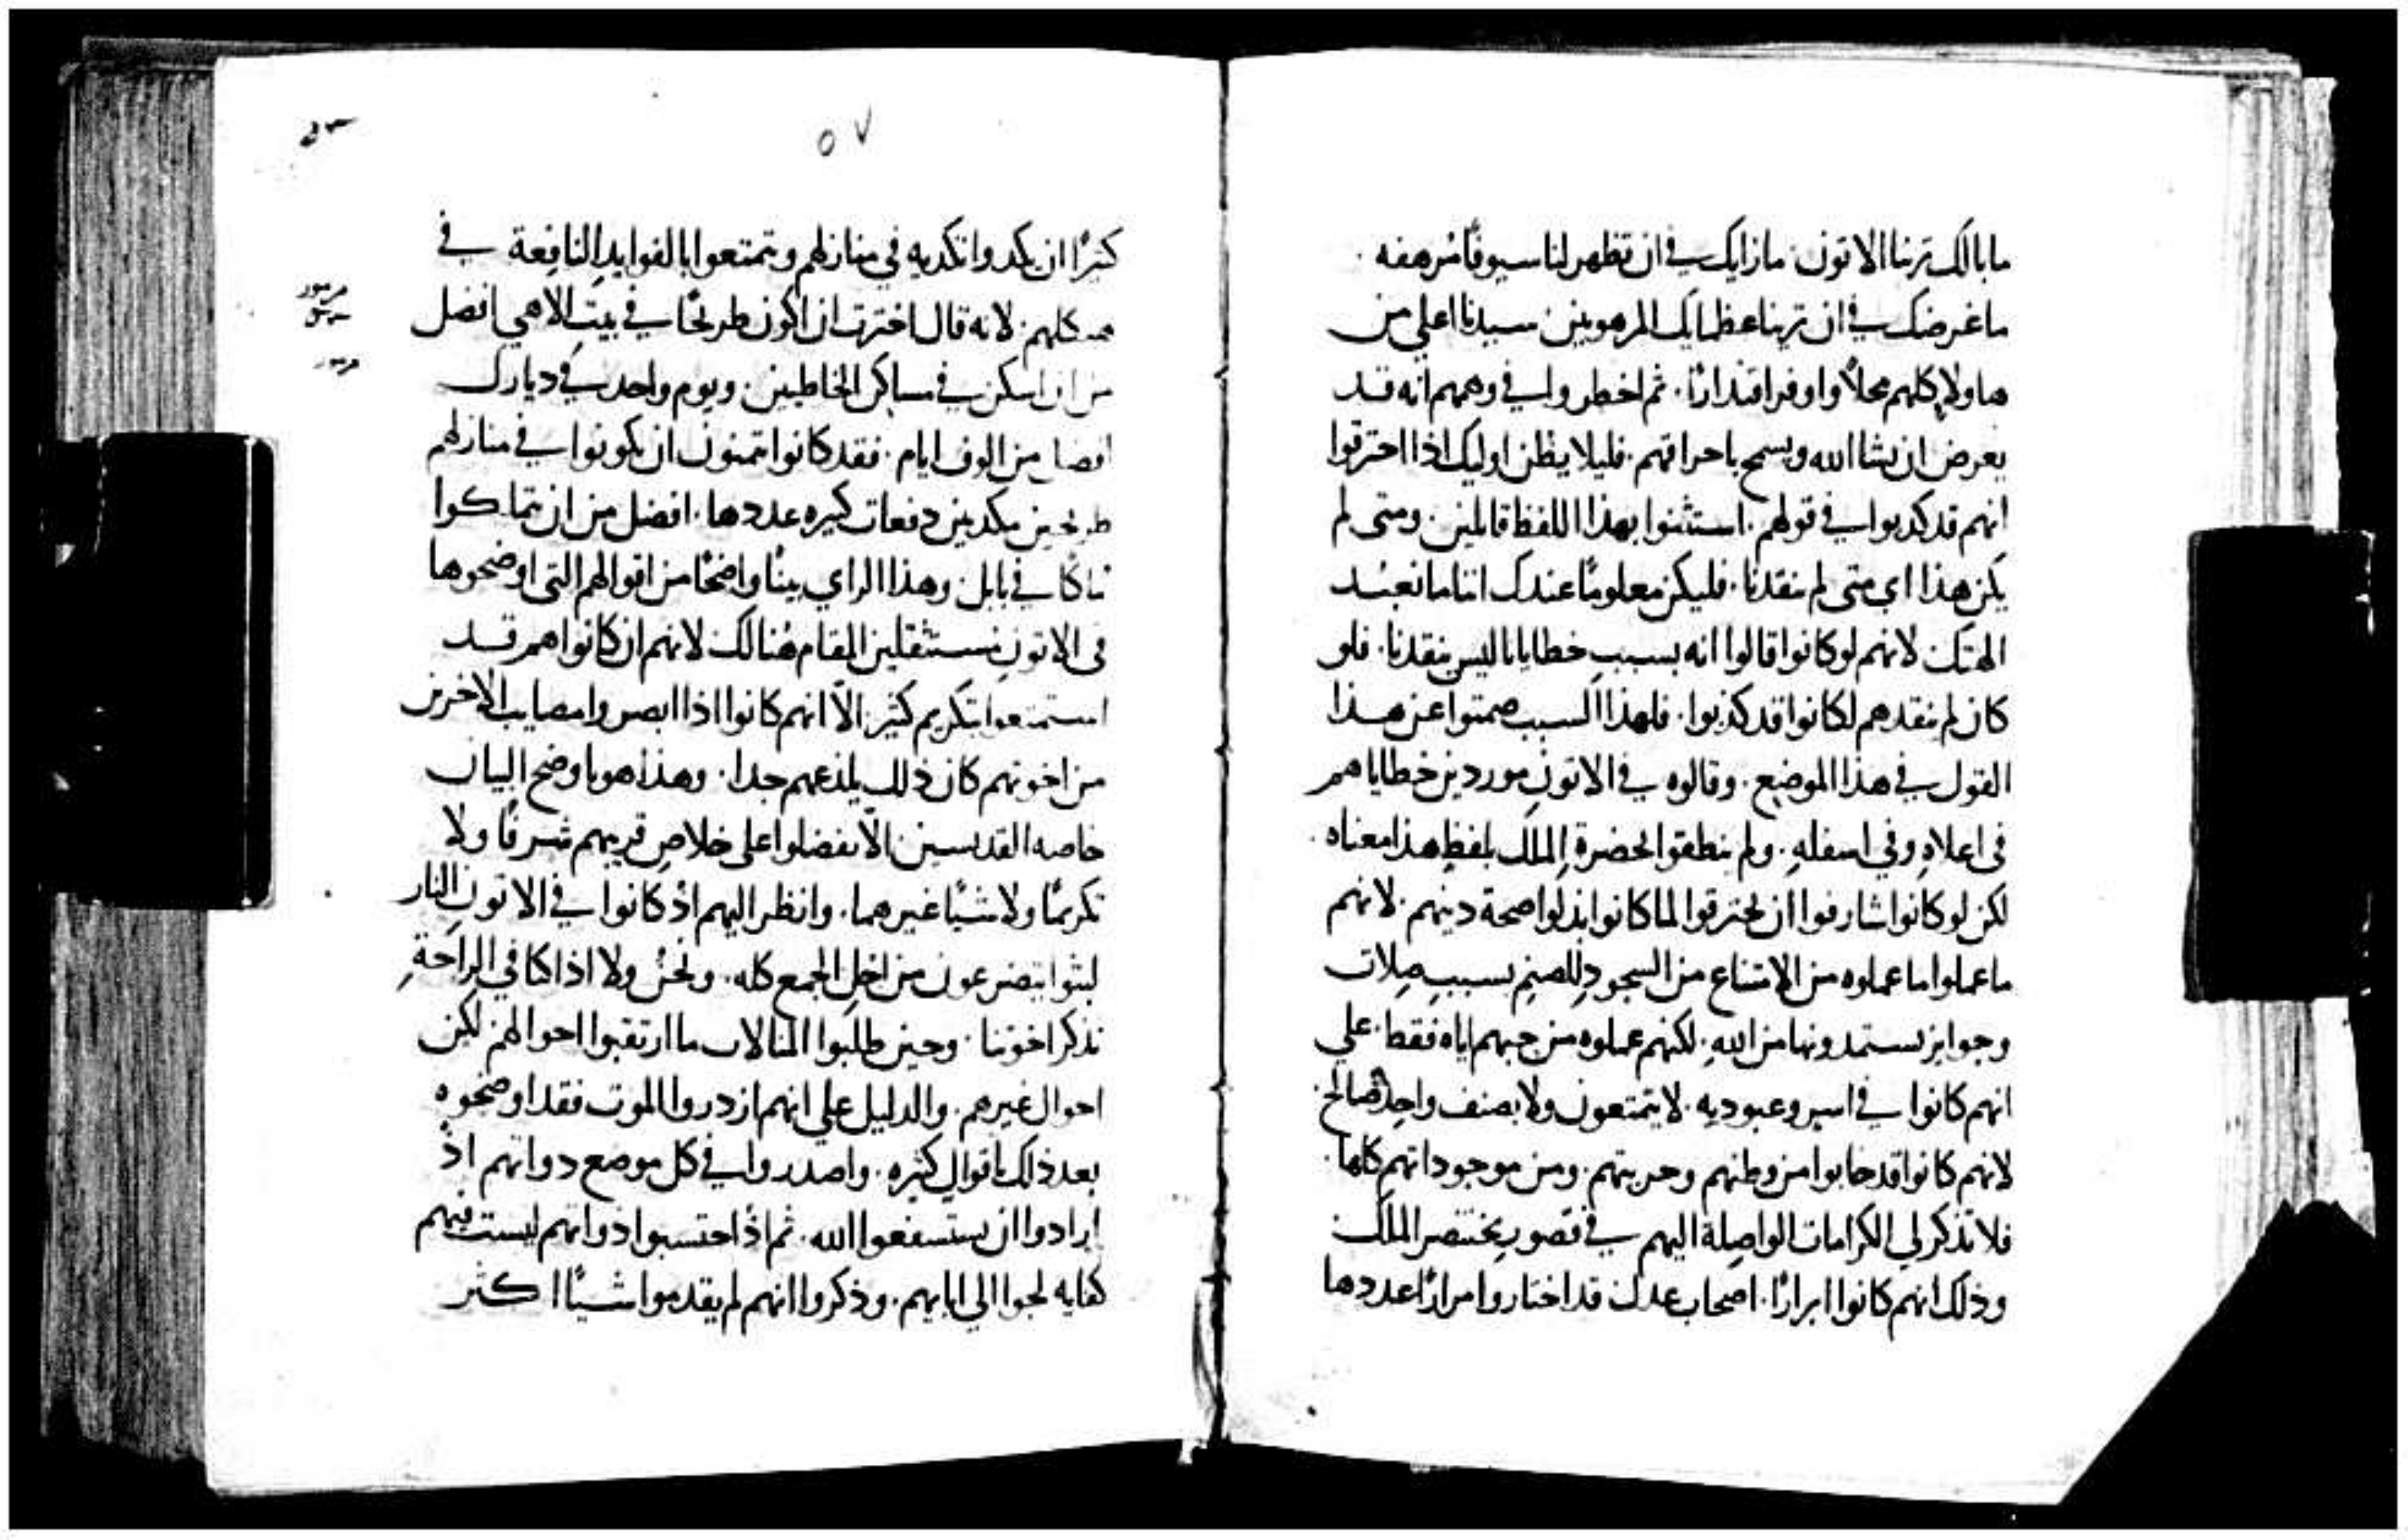 ما بالك ترينا الاتون. ما زايك في ان تظهر لنا سيوفًا مُرهفه.
ما غرضك في ان ترينا عظمايك المرهوبين. سيدنا اعلي من
هاولاِ كلهم محلاً واوفر اقتدارًا. ثم اخطروا في وهمهم انه قد
يعرض ان يشا الله ويسمح باحراقهم. فليلا يظن اوليك اذا احترقوا
انهم قد كدبوا في قولهم. استثنوا بهذا اللفظ قايلين. ومتى لم
يكن هذا اي متى لم ينقدنا. فليكن معلومًا عندك اننا ما نعبُد
الهتك. لانهم لو كانوا قالوا انه بسببِ خطايانا ليس ينقدنا. فلو
كان لم ينقدهم لكانوا قد كذبوا. فلهذا السبب صمتوا عن هذا
القول في هذا الموضع. وقالوه في الاتونِ موردين خطاياهم
في اعلاهِ وفي اسفلهِ. ولم ينطقوا بحضرةِ الملك بلفظٍ هذا معناه.
لكن لو كانوا شارفوا ان يحترقوا لما كانوا بذلوا صحة دينهم. لانهم
ما عملوا ما عملوه من الامتناع من السجودِ للصنمِ بسببِ صِلات
وجوايز يستمدونها من اللهِ. لكنهم عملوه من حبهم اياه فقط. علي
انهم كانوا في اسرٍ وعبوديه. لا يتمتعون ولا بصنف واحدٍ صالح.
لانهم كانوا قد خابوا من وطنهم وحريتهم. ومن موجوداتهم كلها.
فلا تذكر لي الكرامات الواصِلة اليهم في قصورِ بختنصر الملك
وذلك انهم كانوا ابرارًا. اصحاب عدل قد اختاروا مرارًا عددها
٥٧
كثيرًا ان يكدوا تكديه في منازلهم ويتمتعوا بالفوايدِ النافِعة في
هيكلهم. لانه قال اخترت ان اكون طريحًا في بيتِ الاهي افضل
من ان اسكن في مساكن الخاطيين. ويوم واحد في ديارك
افضل من الوف ايام. فقد كانوا يتمنون ان يكونوا في منازلهم
طريحين مكديين دفعات كثيره عددها. افضل من ان يتماكوا
في بابل. وهذا الراي بينًا واضحًا من اقوالهم التي اوضحوها
في الاتونِ مستثقلين المقام هُنالك. لانهم ان كانوا هم قد
استمتعوا بتكريم كثير. الاّ انهم كانوا اذا ابصروا مصايب الاخرين
من اخوتهم كان ذلك يلذعهم جدا. وهذا هو باوضح البيان
خاصه القديسين الاّ يفضلوا على خلاصِ قريبهم شرفًا ولا
تكريمًا ولا شيًا غيرهما. وانظر اليهم اذ كانوا في الاتونِ النار
لبثوا يتضرعون من اجلِ الجمع كله. ونحنُ ولا اذا كنا في الراحةِ
نذكر اخوتنا. وحين طلبوا المنامات ما ارتقبوا احوالهم. لكن
احوال غيرهم. والدليل على انهم ازدروا الموت فقد اوضحوه
بعد ذلك باقوالٍ كثيره. واصدروا في كل موضع دواتهم اذ
ارادوا ان يستسفعوا الله. ثم اذ احتسبوا ذواتهم ليست فيهم
كفايه لجوا الي ابايهم. وذكروا انهم لم يقدموا شيًا اكثر